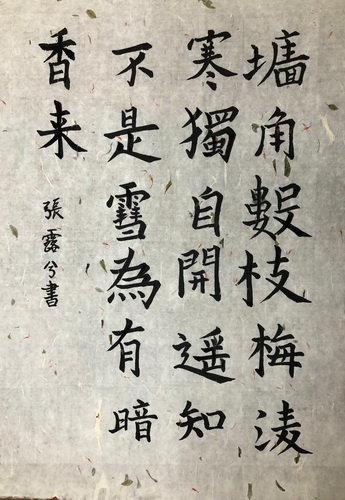 墻角數枝梅凌
寒獨自開遥知
不是雪為有暗
香来
張露兮書